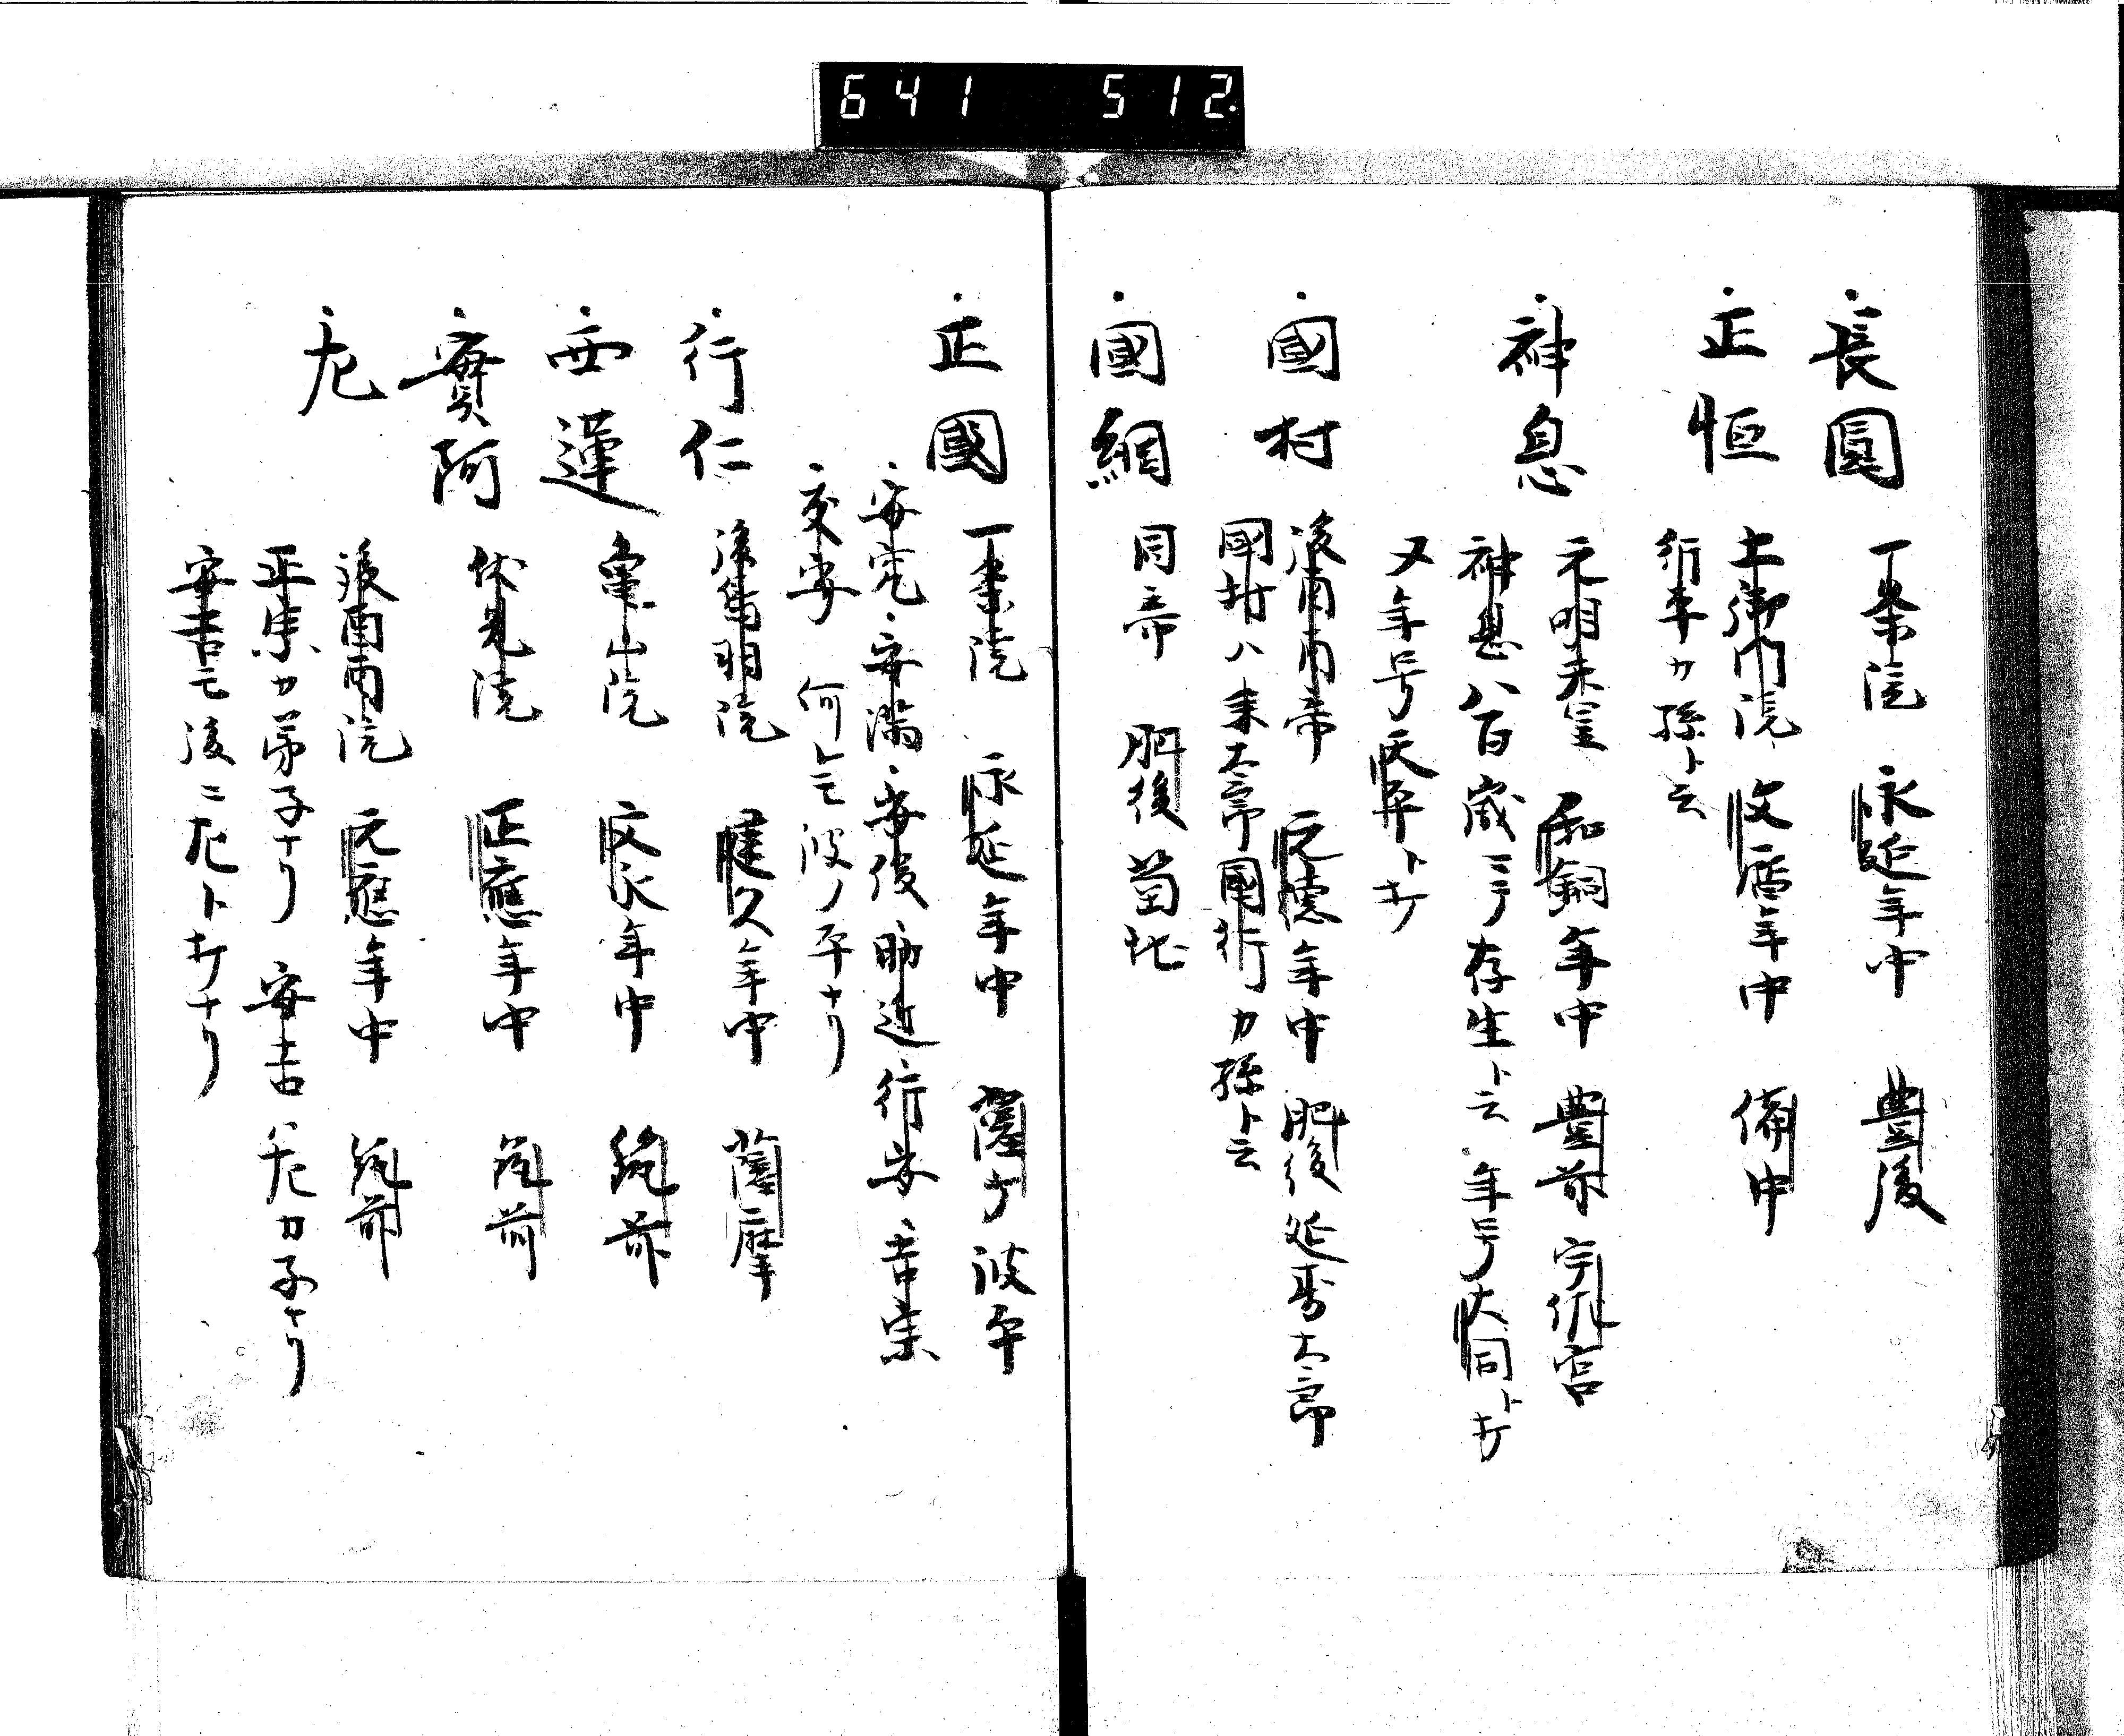 641 512
長圓 一条院 永延年中 豊後
正恒 土御門院 文應年中 備中
行平カ孫ト云
神息 元明天皇 和銅年中 豊前 宇佐宮
神息ハ百歳ニテ存生ト云 年号大同ト打
又年号天平ト打
國村 後有雨帝 元徳年中 肥後 延寿太郎
國村ハ来太郎國行カ孫ト云
國綱 同帝 肥後 菊池
正國 一条院 永延年中 薩广 波平
安光 安満 安後 助近 行安 吉宗
家安 何モ波ノ平ナリ
行仁 後鳥羽院 建久年中 薩摩
西蓮 亀山院 文永年中 筑前
實阿 伏見院 正應年中 筑前
左 後 院 元應年中 筑前
正宗カ弟子ナリ 安吉ハ左カ子ナリ
安吉モ後ニ左ト打ナリ